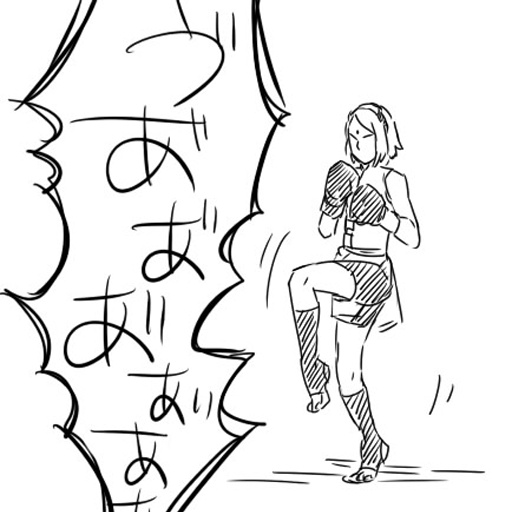 う゛あ゛あ゛あ゛あ゛あ